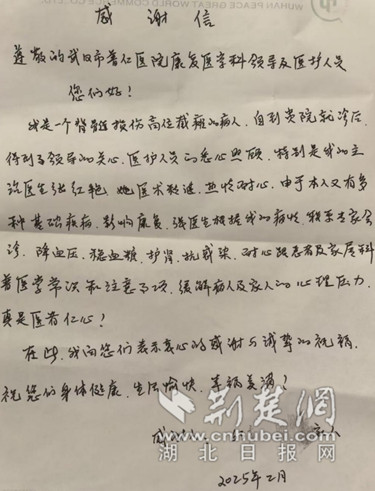 WUHAN PEACE GREAT
WORLD COMMERCE CO.
感谢信
尊敬的武汉市普仁医院康复医学科领导及医护人员
您们好！
我是一个脊髓损伤高位截瘫的病人，自到贵院就诊后，
得到了领导的关心，医护人员的悉心照顾，特别是我的主
治医生张红艳，她医术精湛，热忱耐心，由于本人又有多
种基础疾病，影响康复，张医生根据我的病情，联系专家会
诊，降血压，稳血糖，护肾，抗感染，耐心跟患者及家属科
普医学常识和注意事项，缓解病人及家人的心理压力，
真是医者仁心！
在此，我向您们表示衷心的感谢与诚挚的祝福，
祝您们身体健康，生活愉快，幸福美满！
荆楚网
www.cnhubei.com
湖北日报网
2025年2月